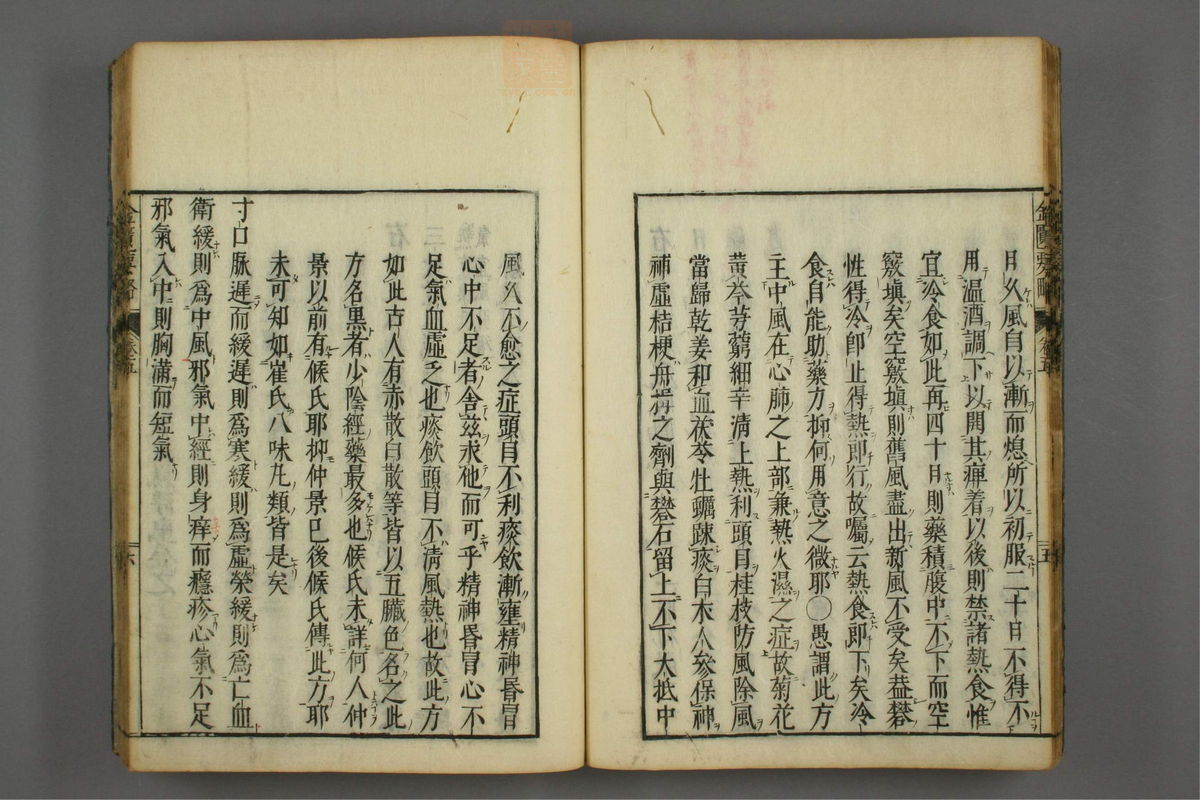 日久風自以漸而熄所以初服二十日不得不
用温酒調下以開其痺着以後則禁諸熱食惟
宜冷食如此再四十日則藥積腹中不下而空
竅填矣空竅填則舊風盡出新風不受矣葢礬
性得冷卽止得熱卽行故囑云熱食卽下矣冷
食自能助藥力抑何用意之微耶○愚謂此方
主中風在心肺之上部兼熱火濕之症故菊花
黄芩芎藭細辛淸上熱利頭目桂枝防風除風
當歸乾姜和血茯苓牡蠣踈痰白朮人參保神
補虛桔梗舟揖之劑與礬石留上不下大抵中
風久不愈之症頭目不利痰飲漸壅精神昏冒
心中不足者舍兹求他而可乎精神昏冒心不
足氣血虛乏也痰飲頭目不淸風熱也故此方
如此古人有赤散白散等皆以五臟色名之此
方名黒者少陰經藥最多也候氏未詳何人仲
景以前有候氏耶抑仲景已後候氏傳此方耶
未可知如崔氏八味丸類皆是矣
寸口脉遲而緩遲則爲寒緩則爲虛榮緩則爲亡血
衛緩則爲中風邪氣中經則身痒而癮疹心氣不足
邪氣入中則胸滿而短氣